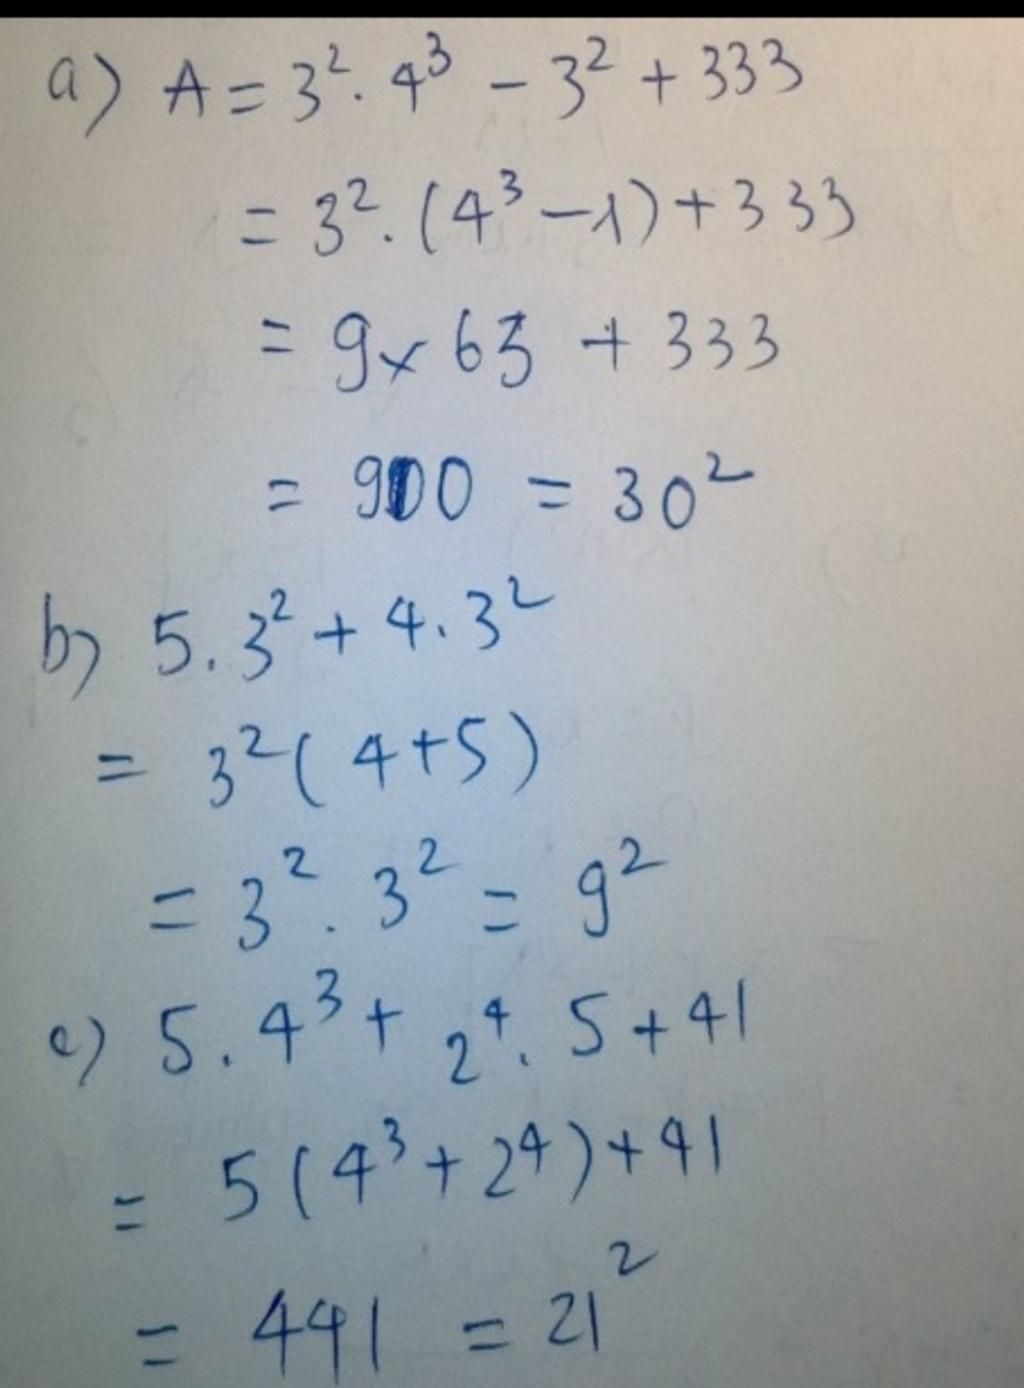 a) A = 3². 4³ - 3² + 333
= 3². (4³ - 1) + 333
= 9 x 63 + 333
= 900 = 30²
b) 5. 3² + 4. 3²
= 3² ( 4 + 5 )
= 3² . 3² = 9²
c) 5. 4³ + 2⁴. 5 + 41
= 5 ( 4³ + 2⁴ ) + 41
= 441 = 21²